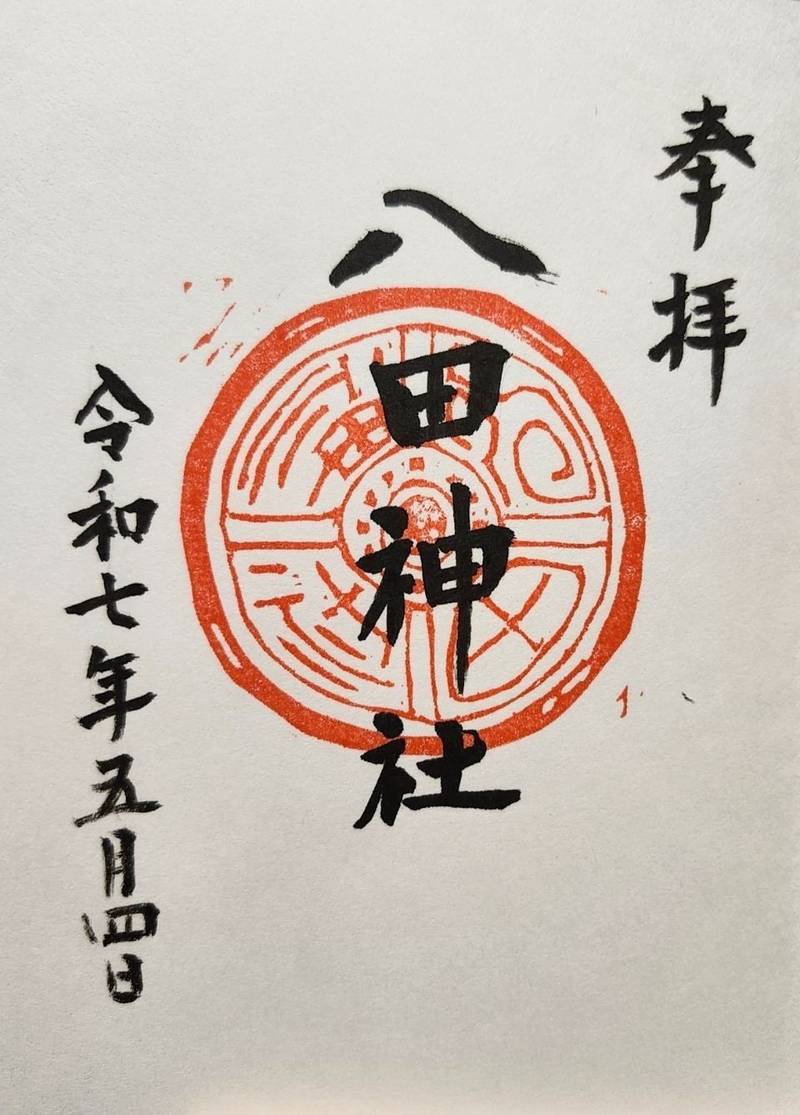 奉拝
八田神社
令和七年五月四日